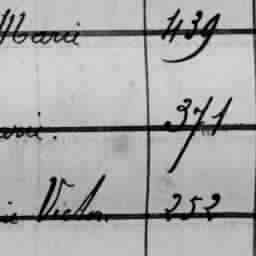 Marie 439
arie. 371
ie Victor. 252